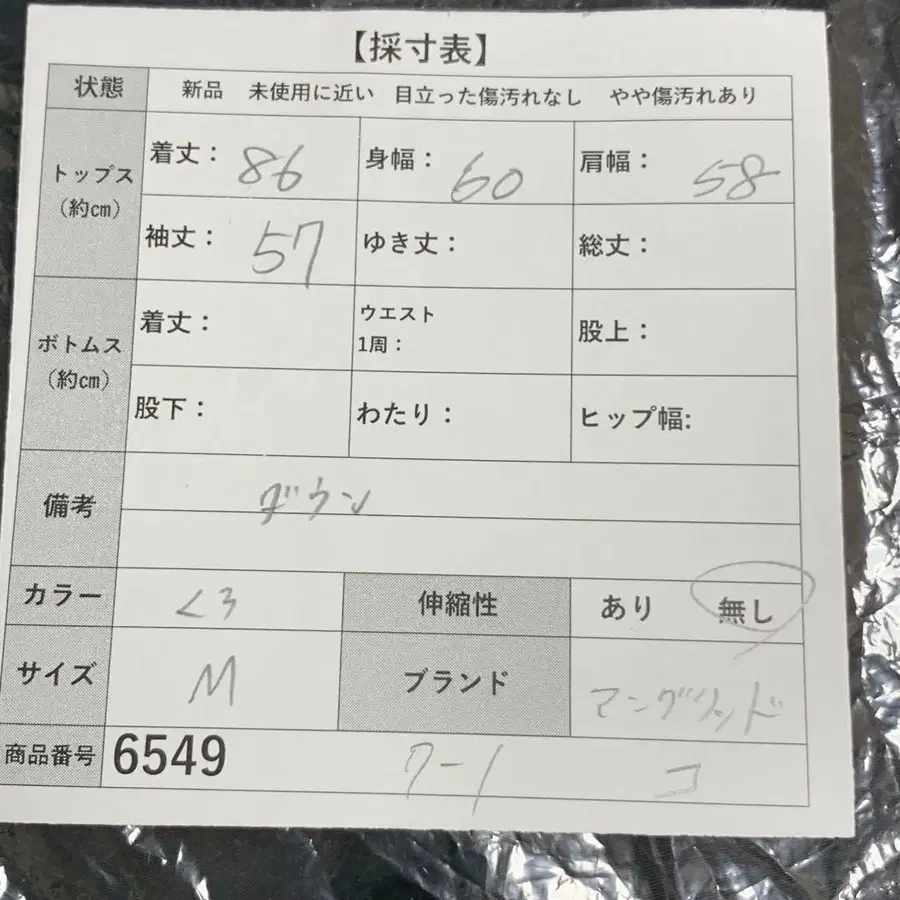 【採寸表】
状態 新品 未使用に近い 目立った傷汚れなし やや傷汚れあり
トップス（約cm） 着丈： 86 身幅： 60 肩幅： 58
袖丈： 57 ゆき丈： 総丈：
ボトムス（約cm） 着丈： ウエスト1周： 股上：
股下： わたり： ヒップ幅:
備考 ダウン
カラー くろ 伸縮性 あり 無し
サイズ M ブランド
商品番号 6549 7-1 コ